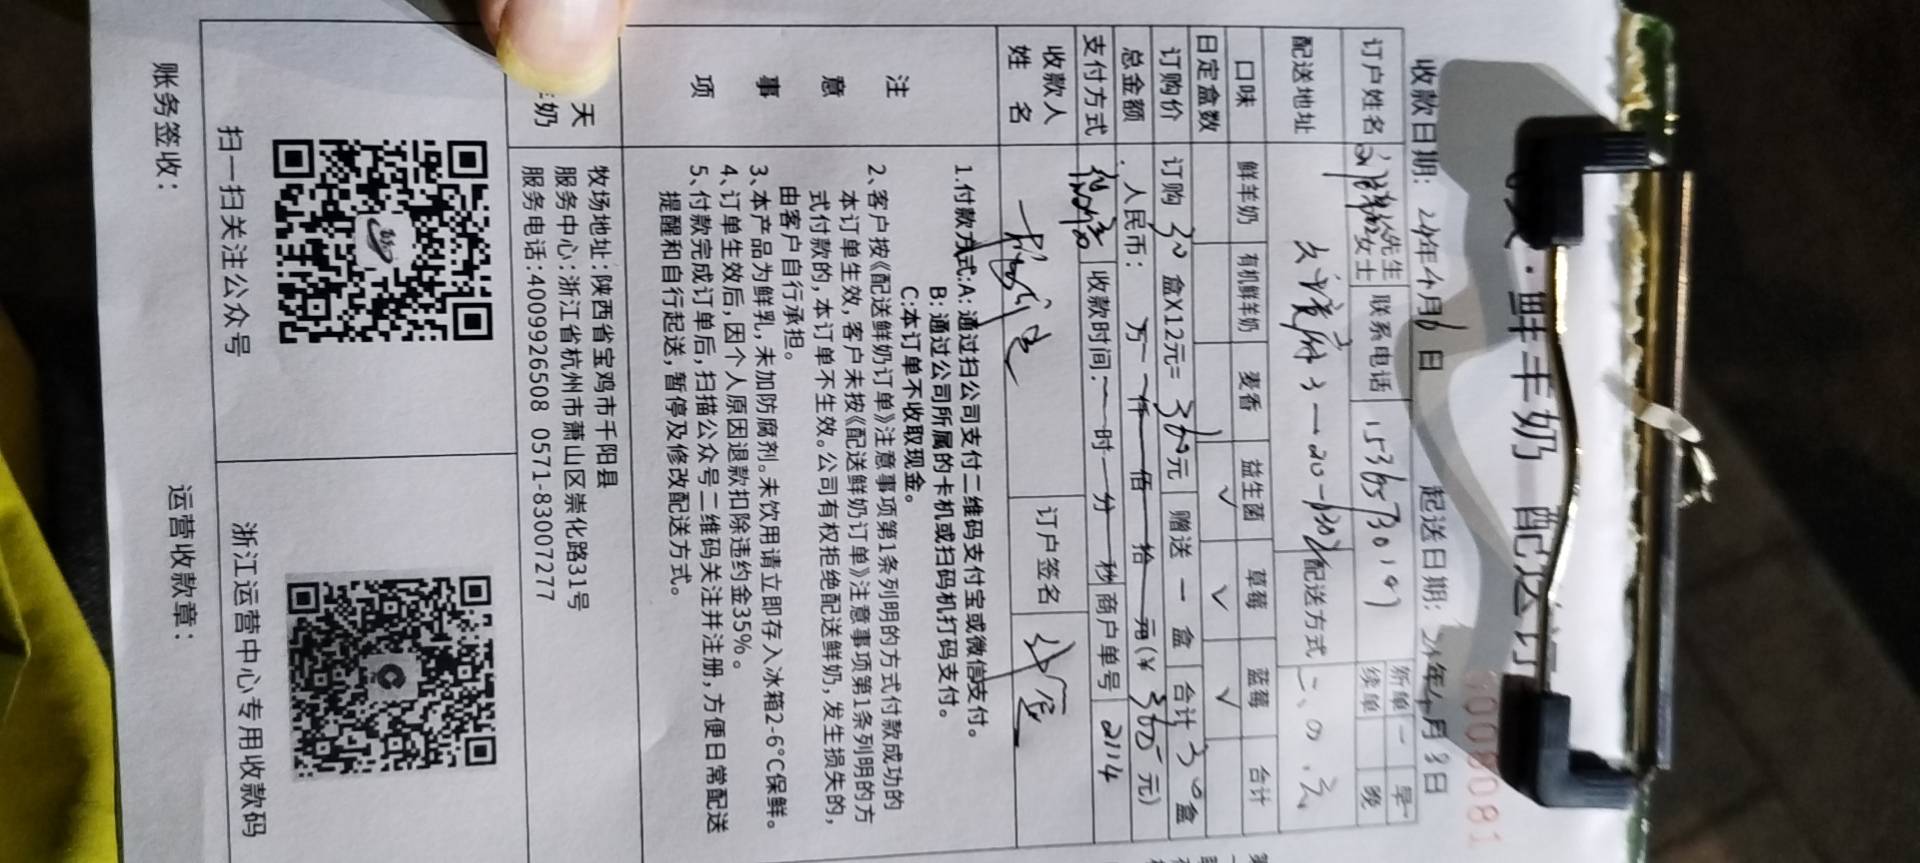 鲜羊奶 配送订
00080081
收款日期: 24年4月6日 起送日期: 24年4月8日
订户姓名 先生 女士 联系电话 15365730197 新单 续单 早 晚
配送地址 配送方式
口味 鲜羊奶 有机鲜羊奶 麦香 益生菌 草莓 蓝莓 合计
日定盒数 √ √ √
订购价 订购 30 盒X12元= 360元 赠送 一 盒 合计 30盒
总金额 人民币: 万 仟 佰 拾 元(¥ 360 元)
支付方式 收款时间: 时 分 秒 商户单号 2114
收款人姓名 订户签名
注意事项
1.付款方式:A: 通过扫公司支付二维码支付宝或微信支付。
B: 通过公司所属的卡机或扫码机打码支付。
C:本订单不收取现金。
2、客户按《配送鲜奶订单》注意事项第1条列明的方式付款成功的
本订单生效, 客户未按《配送鲜奶订单》注意事项第1条列明的方
式付款的, 本订单不生效。公司有权拒绝配送鲜奶, 发生损失的,
由客户自行承担。
3、本产品为鲜乳, 未加防腐剂。未饮用请立即存入冰箱2-6°C保鲜。
4、订单生效后, 因个人原因退款扣除违约金35%。
5、付款完成订单后, 扫描公众号二维码关注并注册, 方便日常配送
提醒和自行起送, 暂停及修改配送方式。
天
奶
牧场地址:陕西省宝鸡市千阳县
服务中心:浙江省杭州市萧山区崇化路31号
服务电话:4009926508 0571-83007277
扫一扫关注公众号 浙江运营中心专用收款码
账务签收: 运营收款章: